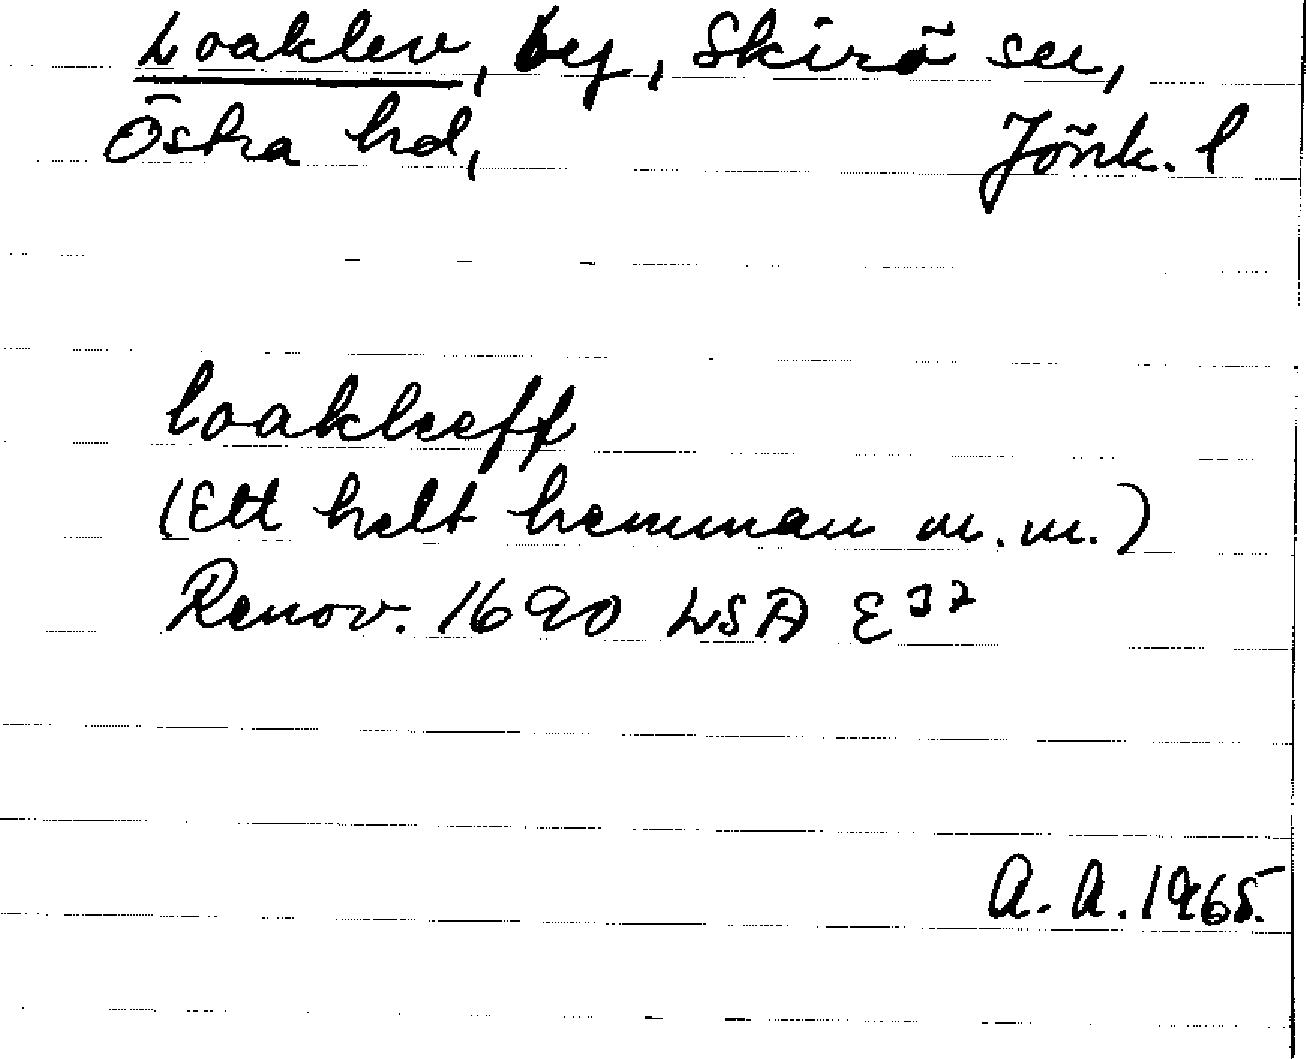 Loaklev, by, Skirö sn,
Östra hd, Jönk. l
loakleeff
(Ett helt hemman m.m.)
Renov. 1690 LSA E 32
A. A. 1965.